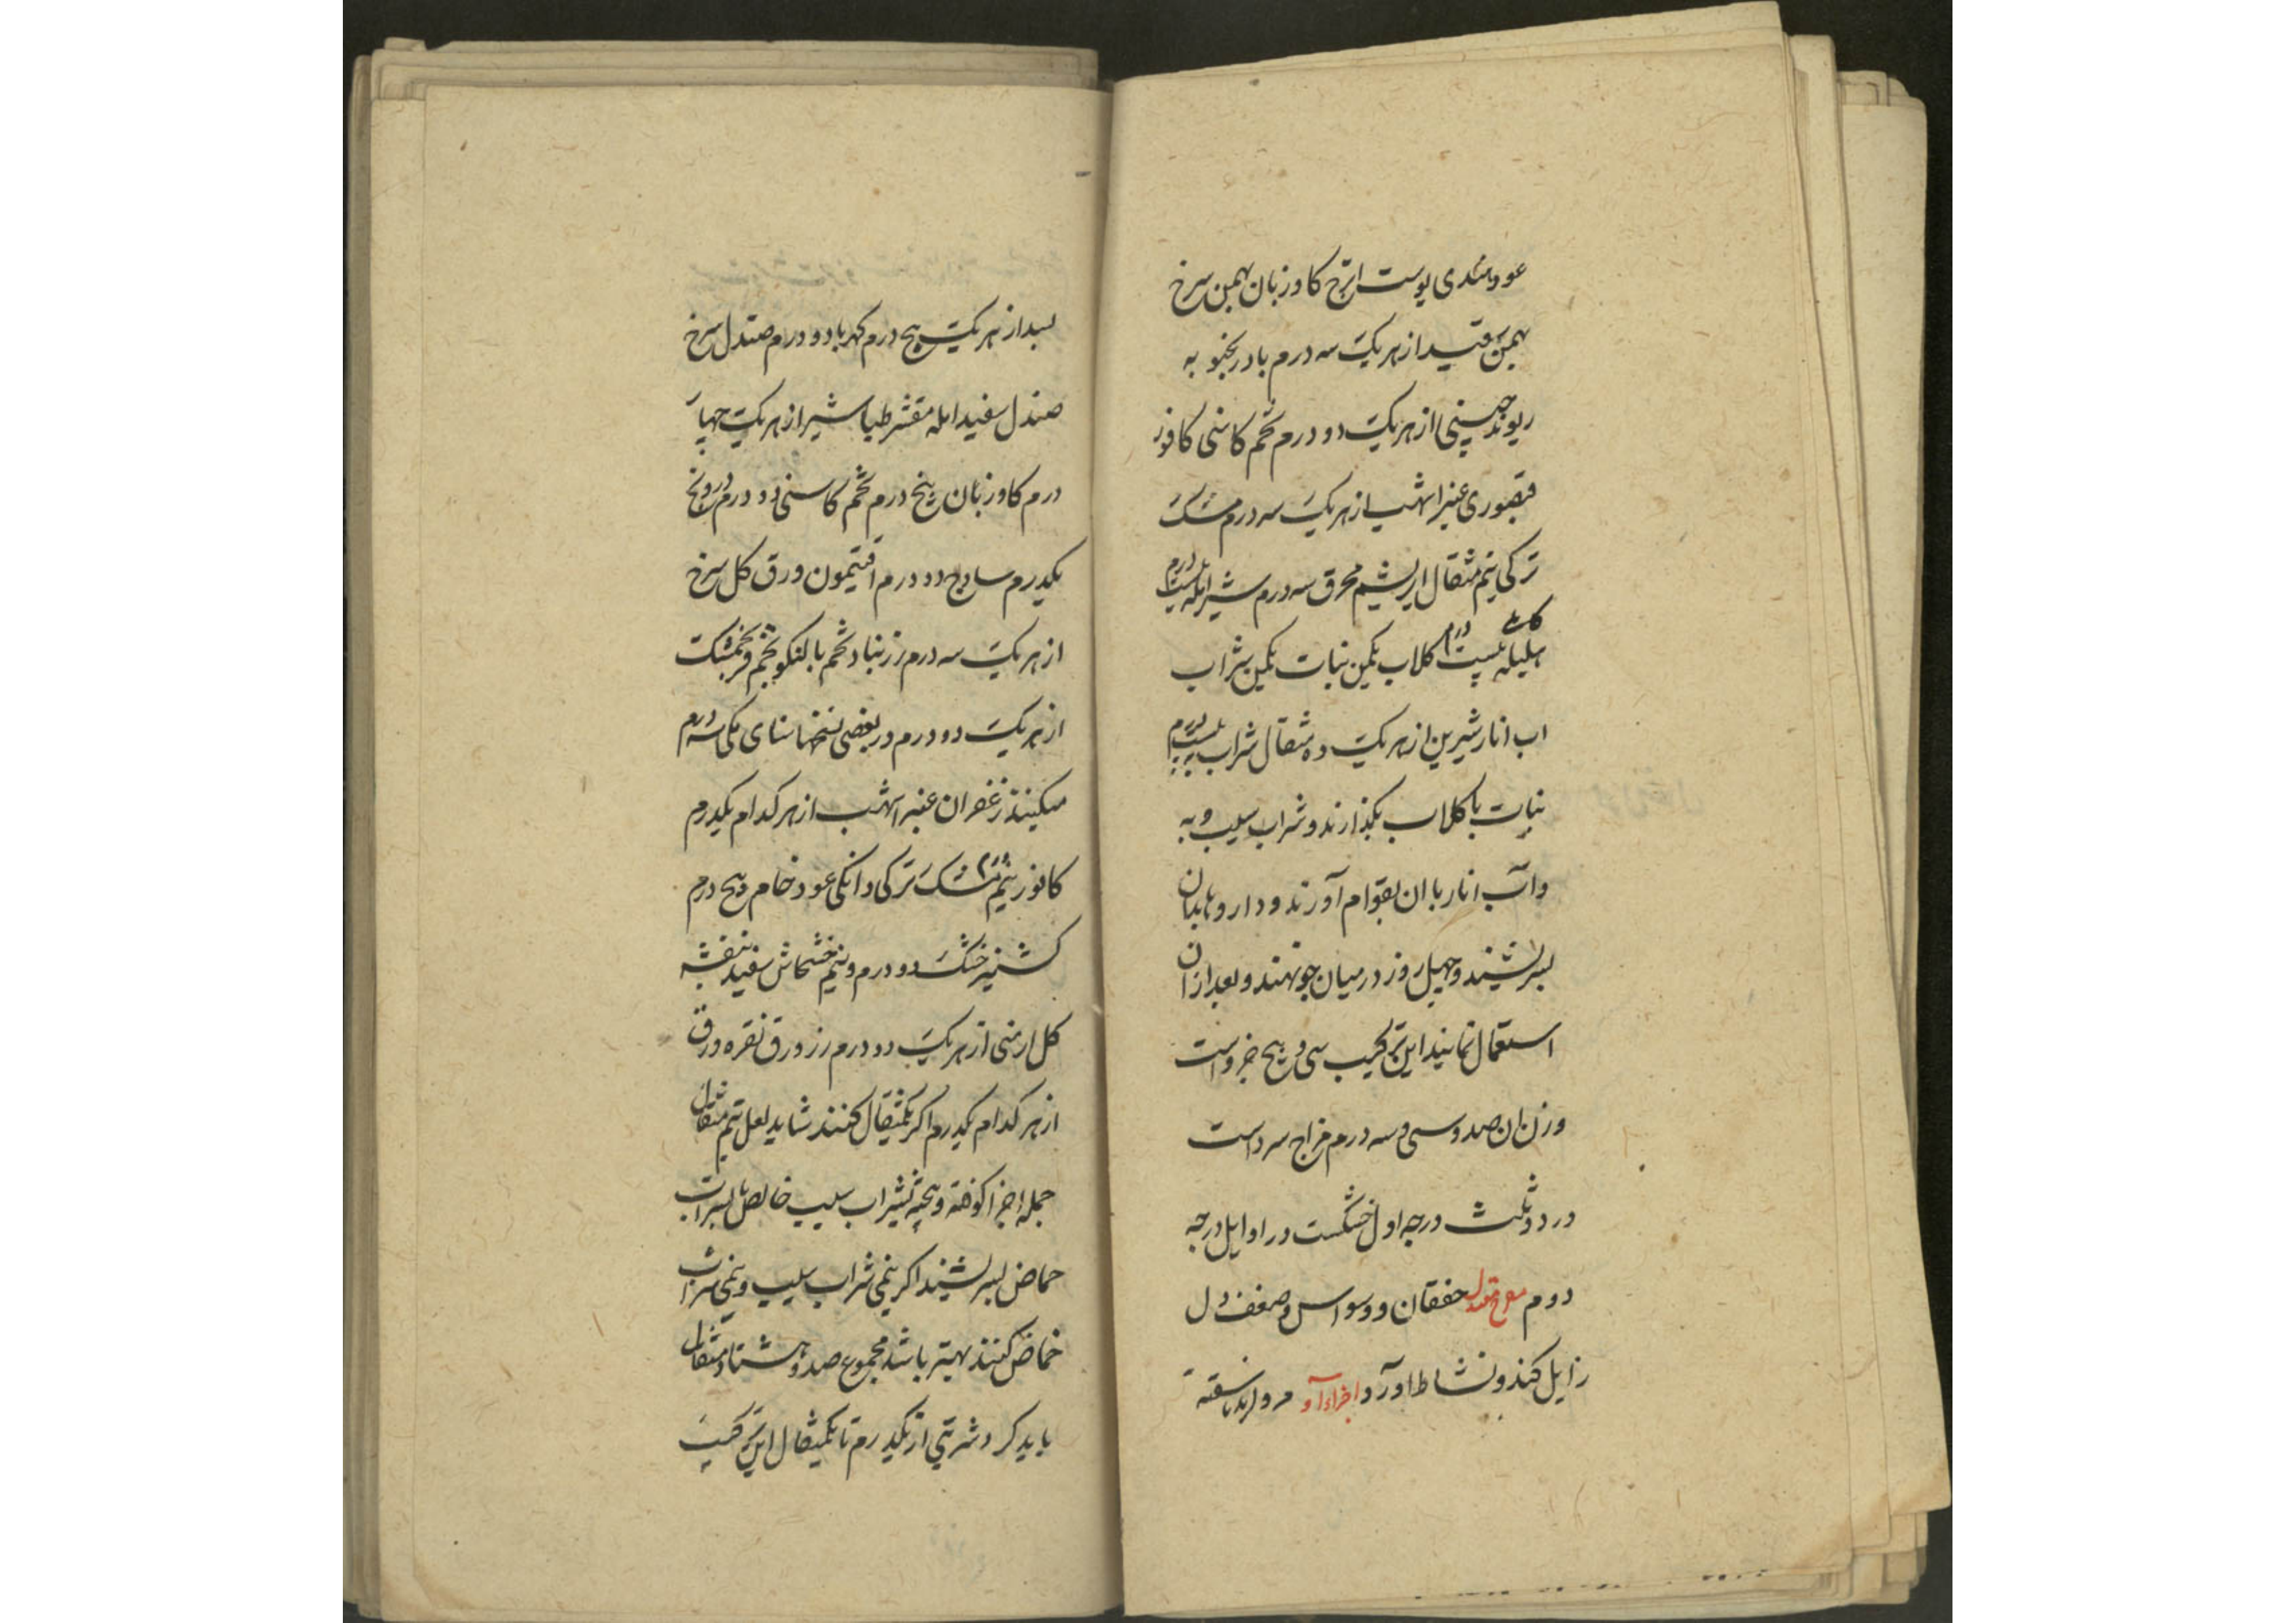 عود هندی پوست اترج کاوزبان بهمن سرخ
بهمن سفید از هریک سه درم بادرنجبویه
ریوند چینی از هریک دو درم تخم کاسنی کافور
قیصوری عنبر اشهب از هریک سه درم مشک
ترکی نیم مثقال ابریشم محرق سه درم شیر امله بیست درم
هلیله کابلی بیست درم کلاب یکمن نبات یکمن شراب
اب انار شیرین از هریک ده مثقال شراب به بیست درم
نبات با کلاب بکذارند و شراب سیب و به
و آب انار با ان بقوام آورند و داروها بدان
بسرشیند و چهل روز در میان جو نهند و بعد ازان
استعمال نمایند این ترکیب سی و پنج جزو است
وزن ان صد و سی و سه درم مزاج سرد است
در دو ثلث درجه اول خشکست در اوایل درجه
دوم مفرح معتدل خفقان و وسواس و ضعف دل
زایل کند و نشاط اورد اجزاء آن مروارید ناسفته
بسد از هریک پنج درم کهربا دو درم صندل سرخ
صندل سفید امله مقشر طباشیر از هریک چهار
درم کاوزبان پنج درم تخم کاسنی دو درم درونج
یکدرم سادج دو درم افتیمون ورق کل سرخ
از هریک سه درم زرنباد تخم بالنکو تخم فرنجمشک
از هریک دو درم در بعضی نسخها سنای مکی سه درم
میکنند زعفران عنبر اشهب از هر کدام یکدرم
کافور نیم درم مشک ترکی دانکی عود خام پنج درم
کشنیز خشک دو درم و نیم خشخاش سفید بنفشه
کل ارمنی از هریک دو درم زر ورق نقره ورق
از هر کدام یکدرم اکر یکمثقال کنند شاید لعل نیم مثقال
جمله اجزا کوفته و بیخته بشراب سیب خالص یا بشراب
حماض بسرشیند اکر نیمی شراب سیب و نیمی شراب
حماض کنند بهتر باشد مجموع صد و هشتاد مثقال
باید کرد شربتی از یکدرم تا یکمثقال این ترکیب